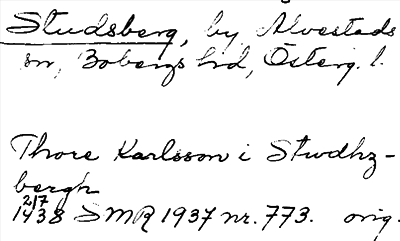 Studsberg, by, Alvestads
sn, Bobergs hd, Österg. l.
Thore Karlsson i Stwdhz-
bergh
2/7
1438 SMR 1937 nr. 773. orig.